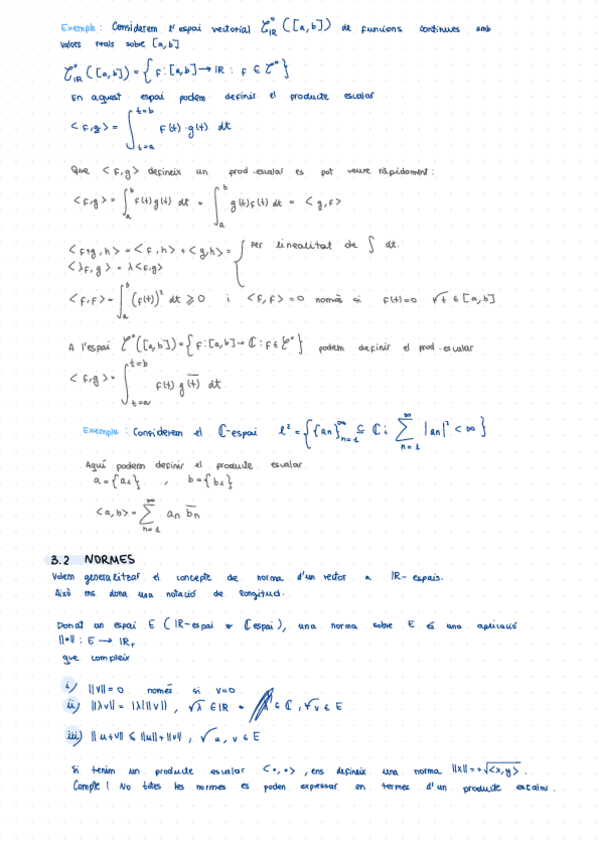 Exemple: Considerem l'espai vectorial 𝒞°_ℝ([a,b]) de funcions contínues amb
valors reals sobre [a,b]
𝒞°_ℝ([a,b]) = { f:[a,b] → ℝ : f ∈ 𝒞° }
En aquest espai podem definir el producte escalar
<f,g> = ∫_{t=a}^{t=b} f(t)·g(t) dt
Que <f,g> defineix un prod.escalar es pot veure ràpidament:
<f,g> = ∫_a^b f(t)g(t) dt = ∫_a^b g(t)f(t) dt = <g,f>
<f+g,h> = <f,h> + <g,h> = { per linealitat de ∫ dt.
<λf,g> = λ<f,g>
<f,f> = ∫_a^b (f(t))² dt ⩾ 0 i <f,f> = 0 només si f(t)=0 ∀t ∈ [a,b]
A l'espai 𝒞°([a,b]) = { f:[a,b] → ℂ : f ∈ 𝒞° } podem definir el prod.escalar
<f,g> = ∫_{t=a}^{t=b} f(t) g(̅t̅)̅ dt
Exemple: Considerem el ℂ-espai l² = { {an}_{n=1}^∞ ⊆ ℂ i ∑_{n=1}^∞ |an|² < ∞ }
Aquí podem definir el producte escalar
a = {a1} , b = {b1}
<a,b> = ∑_{n=1}^∞ an b̅n
3.2 NORMES
Volem generalitzar el concepte de norma d'un vector a ℝ-espais.
Això ens dona una notació de longitud.
Donat un espai E (ℝ-espai o ℂ espai), una norma sobre E és una aplicació
||•|| : E → ℝ₊
que compleix
i) ||v|| = 0 només si v=0
ii) ||λv|| = |λ| ||v|| , ∀λ ∈ ℝ o ∈ ℂ, ∀v ∈ E
iii) ||u+v|| ≤ ||u|| + ||v|| , ∀u,v ∈ E
Si tenim un producte escalar <•,•>, ens defineix una norma ||x|| = +√<x,y>.
Compte! No totes les normes es poden expressar en termes d'un producte escalar.